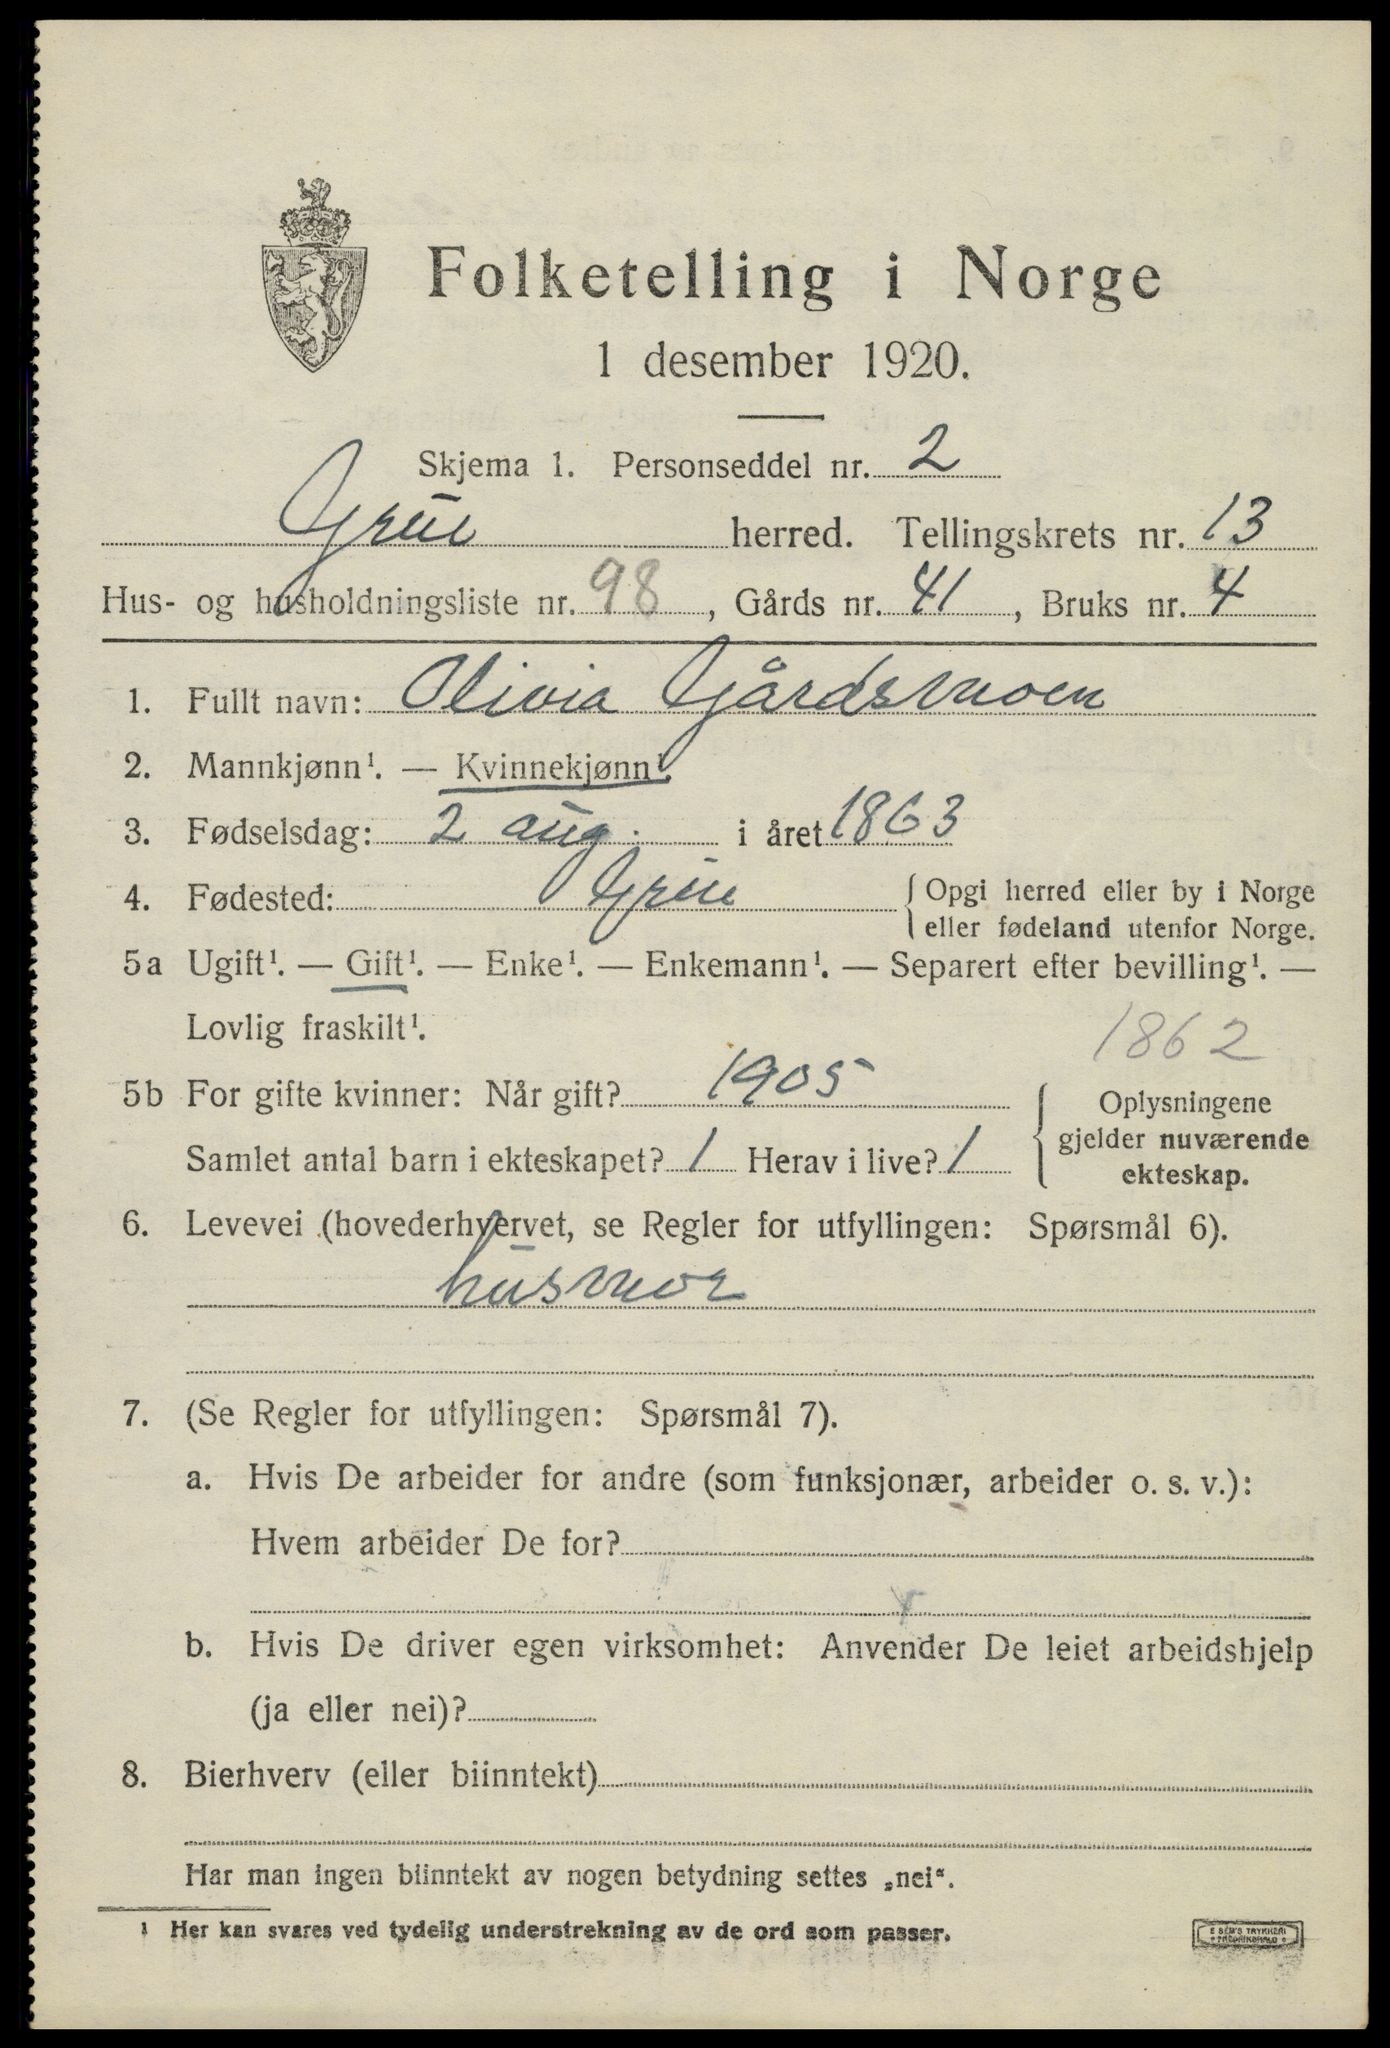 Folketelling i Norge
1 desember 1920.
Skjema 1. Personseddel nr. 2
Grue herred. Tellingskrets nr. 13
Hus- og husholdningsliste nr. 98, Gårds nr. 41, Bruks nr. 4
1. Fullt navn: Olivia Gårdsmoen
2. Mannkjønn¹. — Kvinnekjønn¹.
3. Fødselsdag: 2 aug. i året 1863
4. Fødested: Grue { Opgi herred eller by i Norge
eller fødeland utenfor Norge.
5a Ugift¹. — Gift¹. — Enke¹. — Enkemann¹. — Separert efter bevilling¹. —
Lovlig fraskilt¹.
1862
5b For gifte kvinner: Når gift? 1905
Samlet antal barn i ekteskapet? 1 Herav i live? 1
Oplysningene
gjelder nuværende
ekteskap.
6. Levevei (hovederhvervet, se Regler for utfyllingen: Spørsmål 6).
husmor
7. (Se Regler for utfyllingen: Spørsmål 7).
a. Hvis De arbeider for andre (som funksjonær, arbeider o. s. v.):
Hvem arbeider De for?
b. Hvis De driver egen virksomhet: Anvender De leiet arbeidshjelp
(ja eller nei)?
8. Bierhverv (eller biinntekt)
Har man ingen biinntekt av nogen betydning settes „nei“.
¹ Her kan svares ved tydelig understrekning av de ord som passer.
E SEM'S TRYKKERI
FREDRIKSHALD